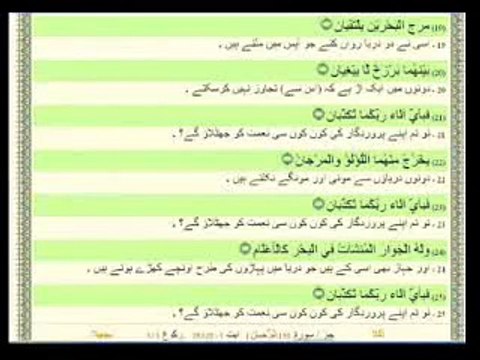 (19) مرج البحرين يلتقيان
19۔ اسی نے دو دریا رواں کئے جو آپس میں ملتے ہیں۔
(20) بينهما برزخ لا يبغيان
20۔ دونوں میں ایک آڑ ہے کہ (اس سے) تجاوز نہیں کرسکتے۔
(21) فبأي آلاء ربكما تكذبان
21۔ تو تم اپنے پروردگار کی کون کون سی نعمت کو جھٹلاؤ گے؟۔
(22) يخرج منهما اللؤلؤ والمرجان
22۔ دونوں دریاؤں سے موتی اور مونگے نکلتے ہیں۔
(23) فبأي آلاء ربكما تكذبان
23۔ تو تم اپنے پروردگار کی کون کون سی نعمت کو جھٹلاؤ گے؟۔
(24) وله الجوار المنشآت في البحر كالأعلام
24۔ اور جہاز بھی اسی کے ہیں جو دریا میں پہاڑوں کی طرح اونچے کھڑے ہوتے ہیں۔
(25) فبأي آلاء ربكما تكذبان
25۔ تو تم اپنے پروردگار کی کون کون سی نعمت کو جھٹلاؤ گے؟۔